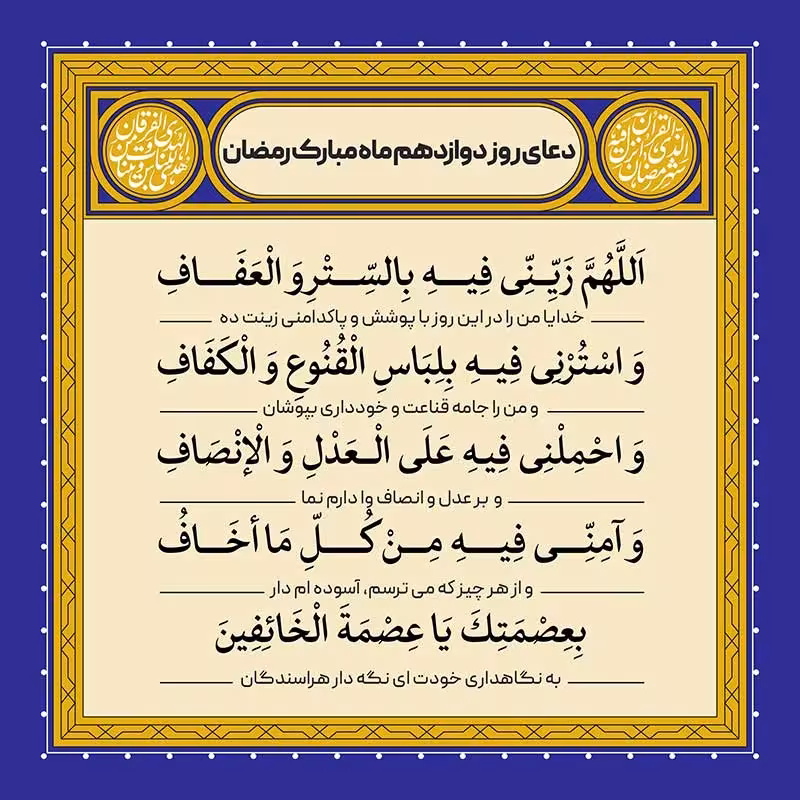 دعای روز دوازدهم ماه مبارک رمضان
شهر رمضان الذی انزل فیه القرآن
هدی للناس و بینات من الهدی و الفرقان
اَللَّهُمَّ زَيِّنِّی فِيهِ بِالسِّتْرِ وَ الْعَفَافِ
خدایا من را در این روز با پوشش و پاکدامنی زینت ده
وَ اسْتُرْنِی فِيهِ بِلِبَاسِ الْقُنُوعِ وَ الْكَفَافِ
و من را جامه قناعت و خودداری بپوشان
وَ احْمِلْنِی فِيهِ عَلَى الْعَدْلِ وَ الْإنْصَافِ
و بر عدل و انصاف وا دارم نما
وَ آمِنِّی فِيهِ مِنْ كُلِّ مَا أخَافُ
و از هر چیز که می ترسم، آسوده ام دار
بِعِصْمَتِكَ يَا عِصْمَةَ الْخَائِفِينَ
به نگاهداری خودت ای نگه دار هراسندگان